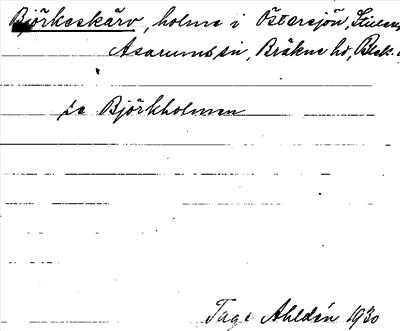 Björkeskärv, holme i Östersjön,
Asarums sn, Bräkne hd, Blek.
se Björkholmen
Tage Ahldén 1930